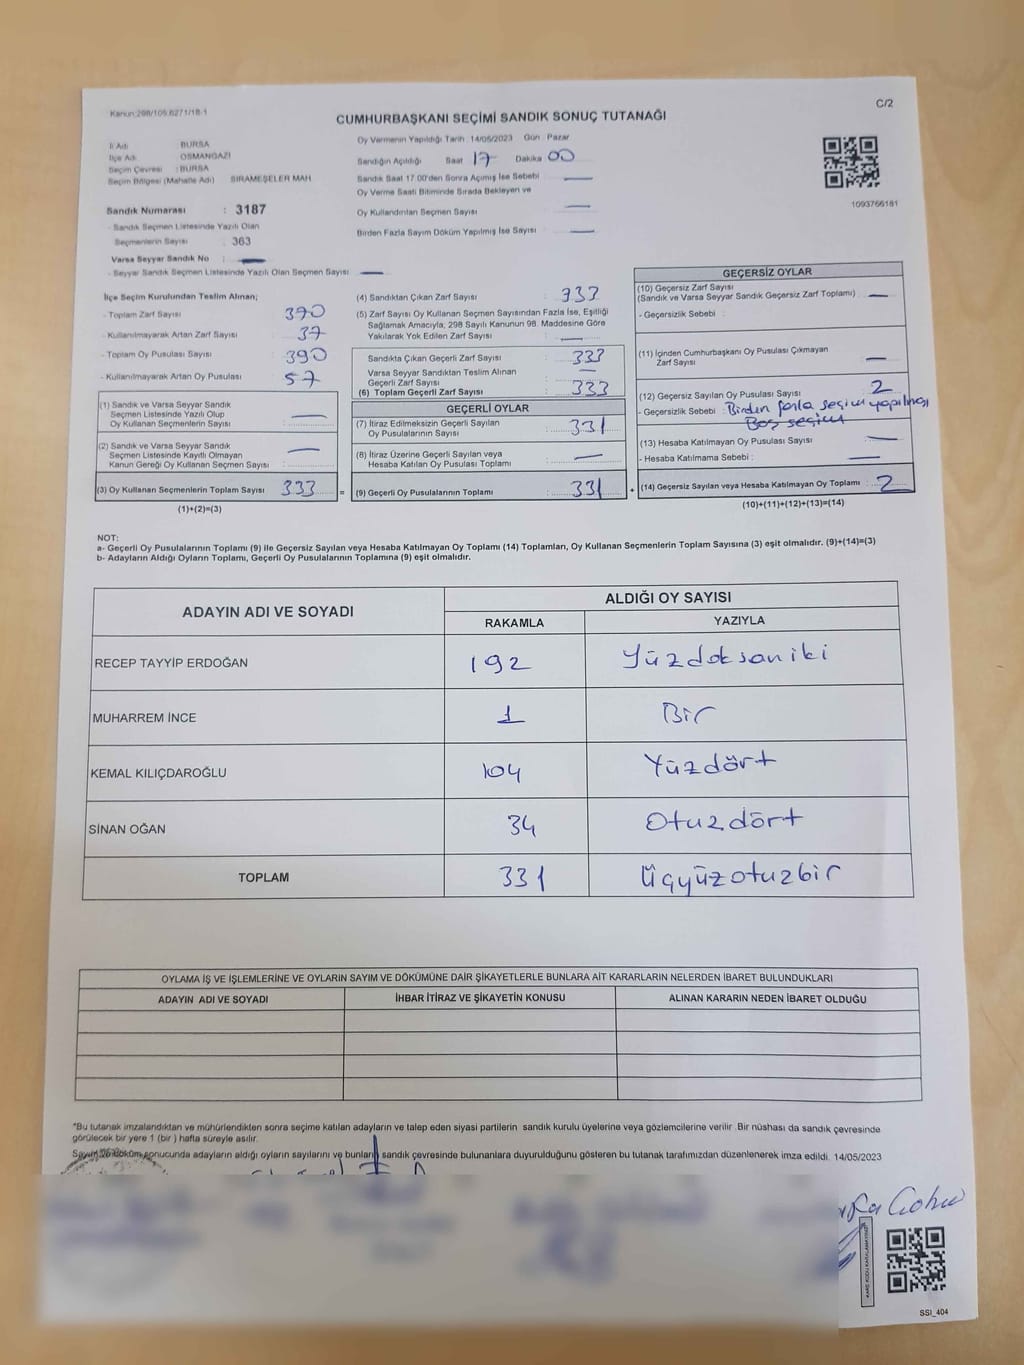 Kanun:298/105.6271/18-1
C/2
CUMHURBAŞKANI SEÇİMİ SANDIK SONUÇ TUTANAĞI
İl Adı : BURSA
İlçe Adı : OSMANGAZİ
Seçim Çevresi : BURSA
Seçim Bölgesi (Mahalle Adı) SIRAMEŞELER MAH
Sandık Numarası : 3187
- Sandık Seçmen Listesinde Yazılı Olan
Seçmenlerin Sayısı : 363
Varsa Seyyar Sandık No : —
- Seyyar Sandık Seçmen Listesinde Yazılı Olan Seçmen Sayısı : —
Oy Vermenin Yapıldığı Tarih :14/05/2023 Gün : Pazar
Sandığın Açıldığı Saat 17 Dakika 00
Sandık Saat 17.00'den Sonra Açımış İse Sebebi —
Oy Verme Saati Bitiminde Sırada Bekleyen ve
Oy Kullandırılan Seçmen Sayısı —
Birden Fazla Sayım Döküm Yapılmış İse Sayısı : —
1093766181
İlçe Seçim Kurulundan Teslim Alınan;
- Toplam Zarf Sayısı : 370
- Kullanılmayarak Artan Zarf Sayısı : 37
- Toplam Oy Pusulası Sayısı : 390
- Kullanılmayarak Artan Oy Pusulası : 57
(1) Sandık ve Varsa Seyyar Sandık
Seçmen Listesinde Yazılı Olup
Oy Kullanan Seçmenlerin Sayısı : —
(2) Sandık ve Varsa Seyyar Sandık
Seçmen Listesinde Kayıtlı Olmayan
Kanun Gereği Oy Kullanan Seçmen Sayısı : —
(3) Oy Kullanan Seçmenlerin Toplam Sayısı : 333
(1)+(2)=(3)
=
(4) Sandıktan Çıkan Zarf Sayısı : 333
(5) Zarf Sayısı Oy Kullanan Seçmen Sayısından Fazla İse, Eşitliği
Sağlamak Amacıyla, 298 Sayılı Kanunun 98. Maddesine Göre
Yakılarak Yok Edilen Zarf Sayısı : —
Sandıkta Çıkan Geçerli Zarf Sayısı : 333
Varsa Seyyar Sandıktan Teslim Alınan
Geçerli Zarf Sayısı : —
(6) Toplam Geçerli Zarf Sayısı : 333
GEÇERLİ OYLAR
(7) İtiraz Edilmeksizin Geçerli Sayılan
Oy Pusulalarının Sayısı : 331
(8) İtiraz Üzerine Geçerli Sayılan veya
Hesaba Katılan Oy Pusulası Toplamı : —
(9) Geçerli Oy Pusulalarının Toplamı : 331
+
GEÇERSİZ OYLAR
(10) Geçersiz Zarf Sayısı
(Sandık ve Varsa Seyyar Sandık Geçersiz Zarf Toplamı) : —
- Geçersizlik Sebebi :
(11) İçinden Cumhurbaşkanı Oy Pusulası Çıkmayan
Zarf Sayısı : —
(12) Geçersiz Sayılan Oy Pusulası Sayısı : 2
- Geçersizlik Sebebi : Birden fazla seçim yapılması
Boş seçim
(13) Hesaba Katılmayan Oy Pusulası Sayısı : —
- Hesaba Katılmama Sebebi : —
(14) Geçersiz Sayılan veya Hesaba Katılmayan Oy Toplamı : 2
(10)+(11)+(12)+(13)=(14)
NOT:
a- Geçerli Oy Pusulalarının Toplamı (9) ile Geçersiz Sayılan veya Hesaba Katılmayan Oy Toplamı (14) Toplamları, Oy Kullanan Seçmenlerin Toplam Sayısına (3) eşit olmalıdır. (9)+(14)=(3)
b- Adayların Aldığı Oyların Toplamı, Geçerli Oy Pusulalarının Toplamına (9) eşit olmalıdır.
ADAYIN ADI VE SOYADI
ALDIĞI OY SAYISI
RAKAMLA YAZIYLA
RECEP TAYYİP ERDOĞAN 192 Yüzdoksaniki
MUHARREM İNCE 1 Bir
KEMAL KILIÇDAROĞLU 104 Yüzdört
SİNAN OĞAN 34 Otuzdört
TOPLAM 331 Üçyüzotuzbir
OYLAMA İŞ VE İŞLEMLERİNE VE OYLARIN SAYIM VE DÖKÜMÜNE DAİR ŞİKAYETLERLE BUNLARA AİT KARARLARIN NELERDEN İBARET BULUNDUKLARI
ADAYIN ADI VE SOYADI İHBAR İTİRAZ VE ŞİKAYETİN KONUSU ALINAN KARARIN NEDEN İBARET OLDUĞU
*Bu tutanak imzalandıktan ve mühürlendikten sonra seçime katılan adayların ve talep eden siyasi partilerin sandık kurulu üyelerine veya gözlemcilerine verilir .Bir nüshası da sandık çevresinde
görülecek bir yere 1 (bir ) hafta süreyle asılır.
Sayım ve döküm sonucunda adayların aldığı oyların sayılarını ve bunların sandık çevresinde bulunanlara duyurulduğunu gösteren bu tutanak tarafımızdan düzenlenerek imza edildi. 14/05/2023
SSI_404